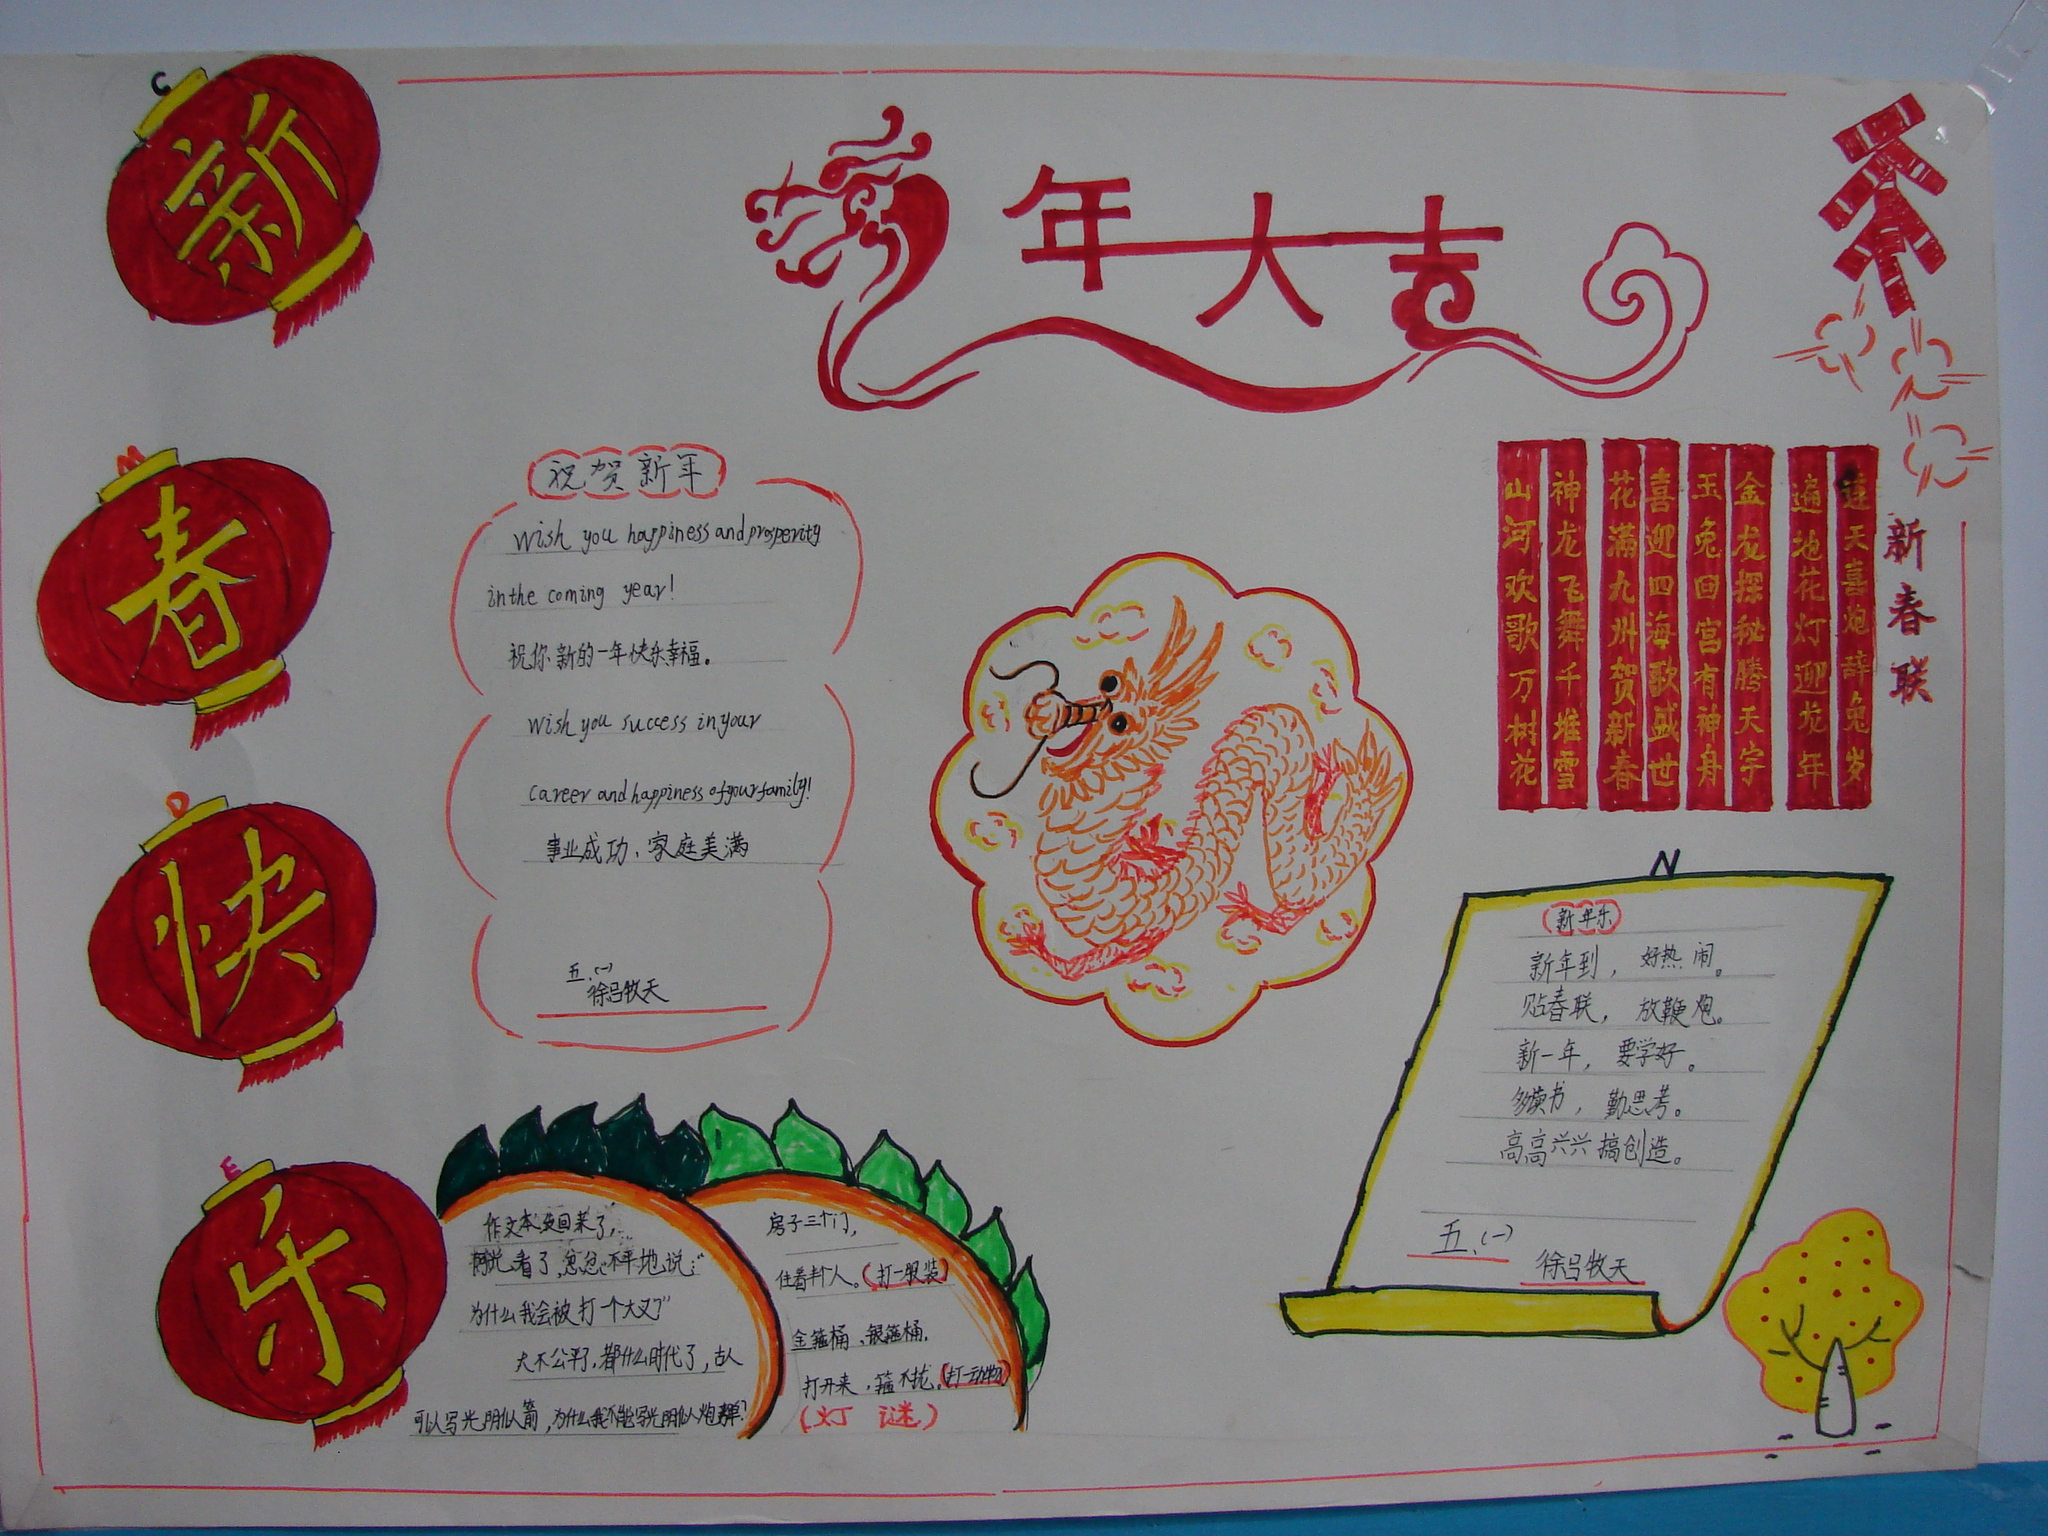 C
新
M
春
D
快
E
乐
年大吉
祝贺新年
Wish you happiness and prosperity
in the coming year!
祝你新的一年快乐幸福。
Wish you success in your
career and happiness of your family!
事业成功、家庭美满
五.(一)
徐吕牧天
连天喜炮辞兔岁
遍地花灯迎龙年
金龙探秘腾天宇
玉兔回宫有神舟
喜迎四海歌盛世
花满九州贺新春
神龙飞舞千堆雪
山河欢歌万树花
新春联
N
新年乐
新年到，好热闹。
贴春联，放鞭炮。
新一年，要学好。
多读书，勤思考。
高高兴兴搞创造。
五.(一)
徐吕牧天
作文本发回来了，
看了,忿忿不平地说:"
为什么我会被打一个大叉"
太不公平了,都什么时代了,古人
可以写光阴似箭,为什么我不能写光阴似炮弹?
房子三个门,
住着半个人。(打一服装)
金箍桶、银箍桶.
打开来，箍不拢。(打一动物)
(灯谜)